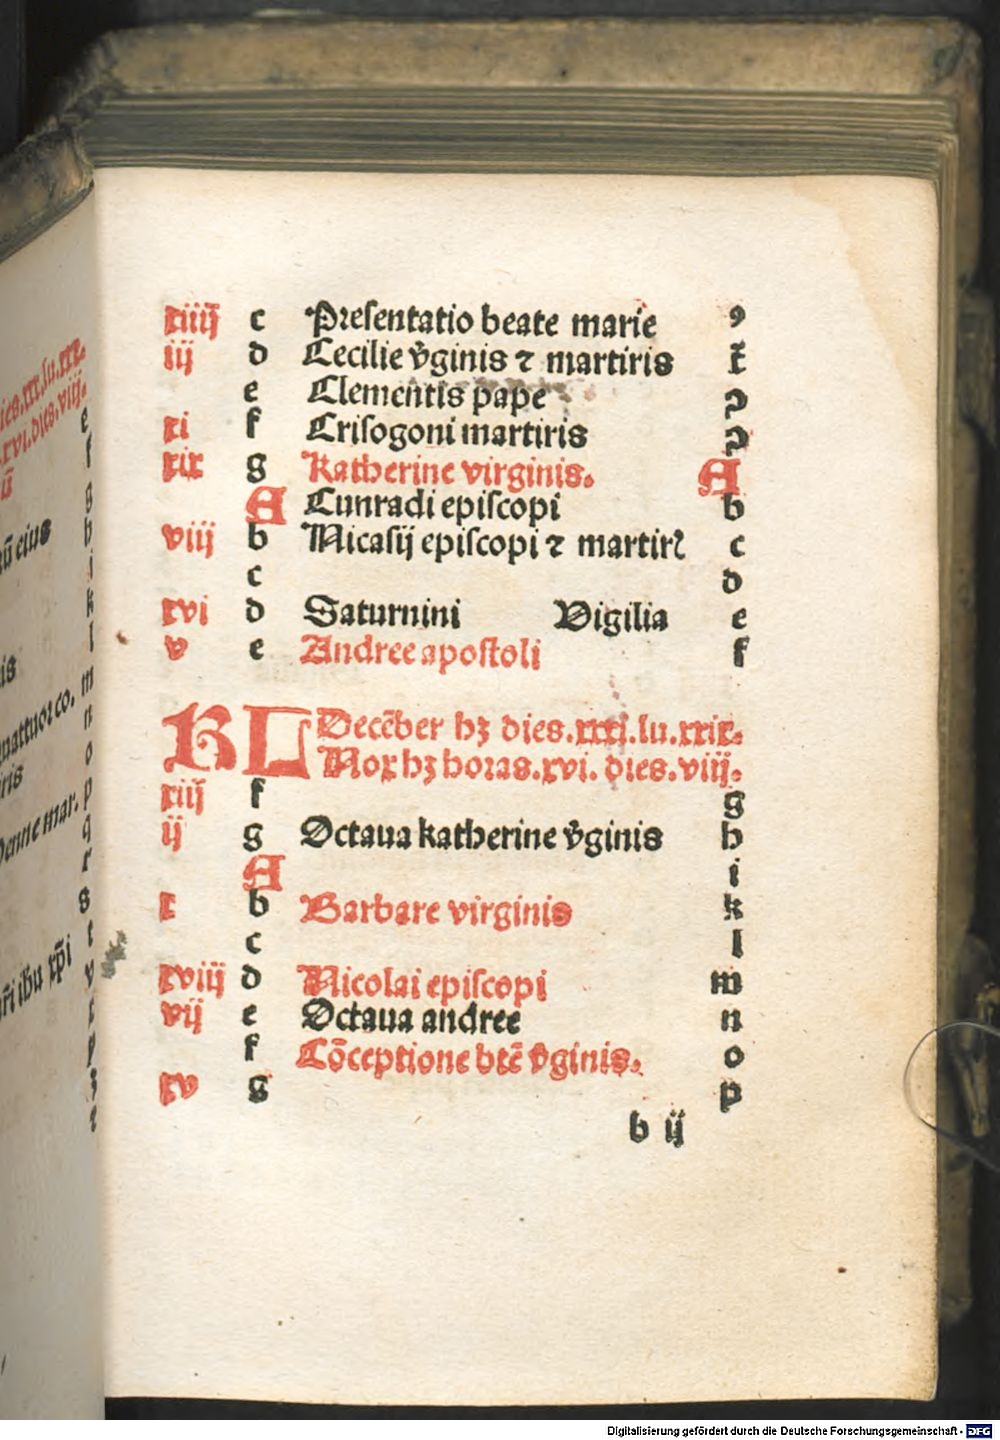 xiiij c Presentatio beate marie ꝰ
iij d Cecilie v̄ginis ⁊ martiris t̄
e Clementis pape ꝓ
xi f Crisogoni martiris
xix g Katherine virginis. A
A Cunradi episcopi b
viij b Nicasij episcopi ⁊ martirꝭ c
c d
xvi d Saturnini Vigilia e
v e Andree apostoli f
KL Decēber hꝫ dies.xxxi.lu.xxix.
Nox hꝫ horas.xvi. dies.viij.
xiij f g
ij g Octaua katherine v̄ginis h
A i
x b Barbare virginis k
c l
xviij d Nicolai episcopi m
vij e Octaua andree n
f Cōceptione btē v̄ginis. o
xv g p
b ij
ies.xxx.lu.xxx.
xvi.dies.viij.
e
f
g
ū eius h
i
k
is l
m
uattuor co. n
o
ris p
enne mar. q
r
s
t
v
ihu xp̄i x
y
ꝫ
⁊
Digitalisierung gefördert durch die Deutsche Forschungsgemeinschaft - DFG